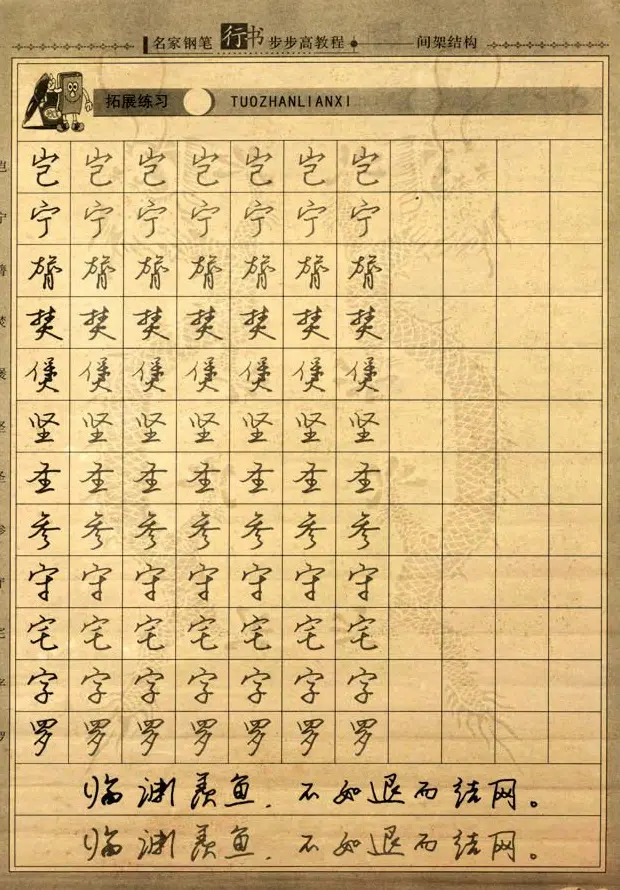 名家钢笔 行书 步步高教程 间架结构
拓展练习 TUOZHANLIANXI
宁 宁 宁 宁 宁 宁 宁
膂 膂 膂 膂 膂 膂 膂
焚 焚 焚 焚 焚 焚 焚
煲 煲 煲 煲 煲 煲 煲
坚 坚 坚 坚 坚 坚 坚
圣 圣 圣 圣 圣 圣 圣
参 参 参 参 参 参 参
守 守 守 守 守 守 守
宅 宅 宅 宅 宅 宅 宅
字 字 字 字 字 字 字
罗 罗 罗 罗 罗 罗 罗
临渊羡鱼，不如退而结网。
临渊羡鱼，不如退而结网。